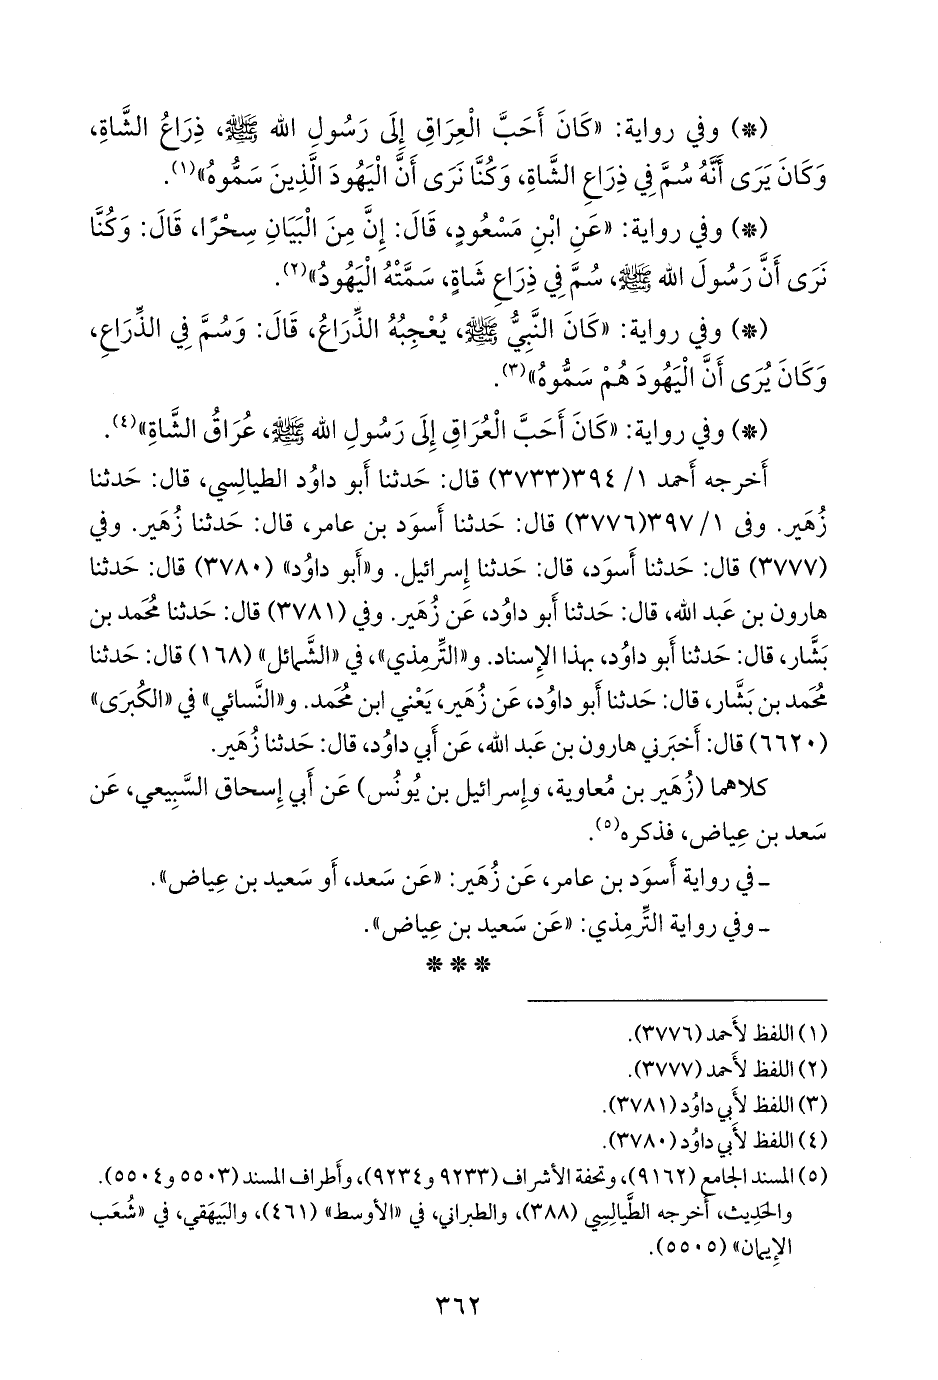 (*) وفي رواية: «كَانَ أَحَبَّ الْعِرَاقِ إِلَى رَسُولِ الله ﷺ، ذِرَاعُ الشَّاةِ،
وَكَانَ يَرَى أَنَّهُ سُمَّ فِي ذِرَاعِ الشَّاةِ، وَكُنَّا نَرَى أَنَّ الْيَهُودَ الَّذِينَ سَمُّوهُ»(١).
(*) وفي رواية: «عَنِ ابْنِ مَسْعُودٍ، قَالَ: إِنَّ مِنَ الْبَيَانِ سِحْرًا، قَالَ: وَكُنَّا
نَرَى أَنَّ رَسُولَ الله ﷺ، سُمَّ فِي ذِرَاعِ شَاةٍ، سَمَّتْهُ الْيَهُودُ»(٢).
(*) وفي رواية: «كَانَ النَّبِيُّ ﷺ، يُعْجِبُهُ الذِّرَاعُ، قَالَ: وَسُمَّ فِي الذِّرَاعِ،
وَكَانَ يُرَى أَنَّ الْيَهُودَ هُمْ سَمُّوهُ»(٣).
(*) وفي رواية: «كَانَ أَحَبَّ الْعُرَاقِ إِلَى رَسُولِ الله ﷺ، عُرَاقُ الشَّاةِ»(٤).
أَخرجه أَحمد ١/ ٣٩٤(٣٧٣٣) قال: حَدثنا أَبو داوُد الطيالِسي، قال: حَدثنا
زُهَير. وفى ١/ ٣٩٧(٣٧٧٦) قال: حَدثنا أَسوَد بن عامر، قال: حَدثنا زُهَير. وفي
(٣٧٧٧) قال: حَدثنا أَسوَد، قال: حَدثنا إِسرائيل. و«أَبو داوُد» (٣٧٨٠) قال: حَدثنا
هارون بن عَبد الله، قال: حَدثنا أَبو داوُد، عَن زُهَير. وفي (٣٧٨١) قال: حَدثنا مُحَمد بن
بَشَّار، قال: حَدثنا أَبو داوُد، بهذا الإِسناد. و«التِّرمِذي»، في «الشَّمائل» (١٦٨) قال: حَدثنا
مُحَمد بن بَشَّار، قال: حَدثنا أَبو داوُد، عَن زُهَير، يَعْني ابن مُحَمد. و«النَّسائي» في «الكُبرَى»
(٦٦٢٠) قال: أَخبَرني هارون بن عَبد الله، عَن أَبي داوُد، قال: حَدثنا زُهَير.
كلاهما (زُهَير بن مُعاوية، وإِسرائيل بن يُونُس) عَن أَبي إِسحاق السَّبِيعي، عَن
سَعد بن عِياض، فذكره(٥).
ـ في رواية أَسوَد بن عامر، عَن زُهَير: «عَن سَعد، أَو سَعيد بن عِياض».
ـ وفي رواية التِّرمِذي: «عَن سَعيد بن عِياض».
* * *
(١) اللفظ لأَحمد (٣٧٧٦).
(٢) اللفظ لأَحمد (٣٧٧٧).
(٣) اللفظ لأَبي داوُد (٣٧٨١).
(٤) اللفظ لأَبي داوُد (٣٧٨٠).
(٥) المسند الجامع (٩١٦٢)، وتحفة الأشراف (٩٢٣٣ و٩٢٣٤)، وأَطراف المسند (٥٥٠٣ و٥٥٠٤).
والحَدِيث، أَخرجه الطَّيالِسِي (٣٨٨)، والطبراني، في «الأَوسط» (٤٦١)، والبَيهَقي، في «شُعَب
الإِيمان» (٥٥٠٥).
٣٦٢